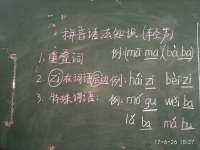 拼音语法知识 (轻声)
1. 重叠词 例:(mā ma)(bà ba)
2. zi 在词语后边 例: hái zi bèi zi
3. 特殊词语: 例: mó gu wěi ba
lǎ ba
17-6-26 15:27